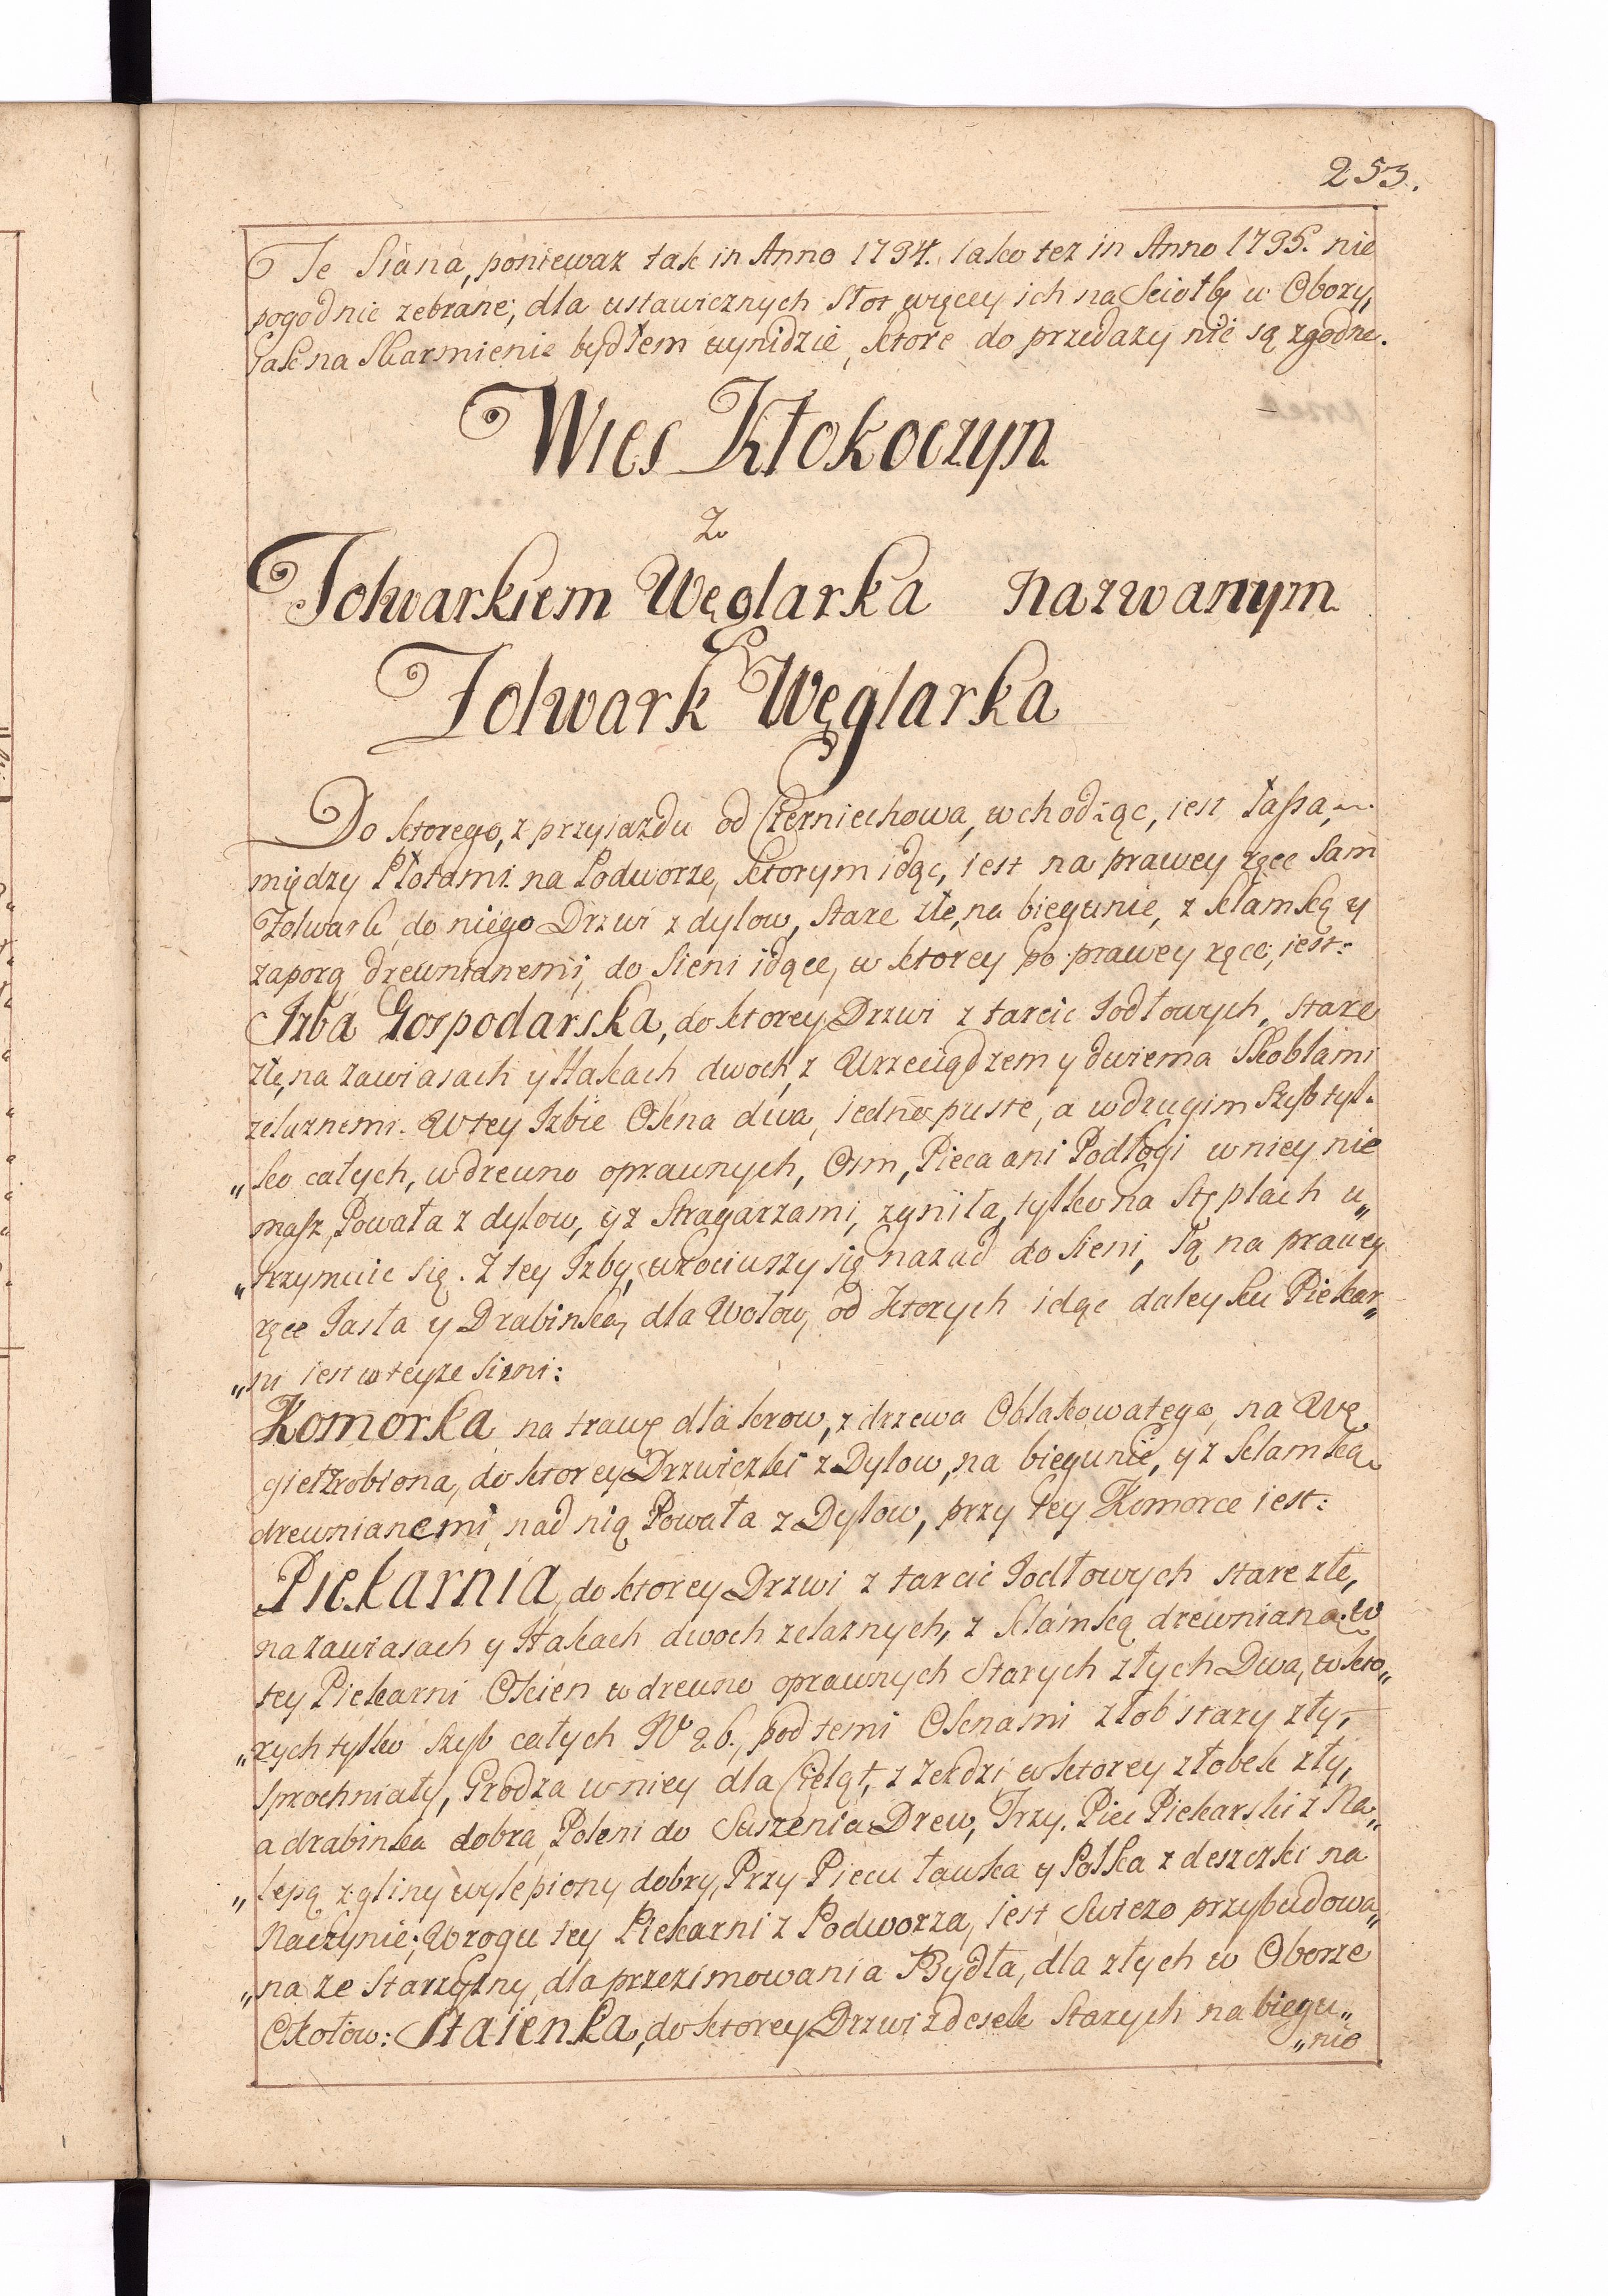 253.
Te Siana, poniewaz tak in Anno 1794. iako tez in Anno 1795. nie
pogodnie zebrane, dla ustawicznych Słot więcey ich na Sciołkę u Obory,
Jak na Skarmienie bydłem wynidzie, ktore do przedazy nie są zgodne.
Wies Kłokoczyn
Z
Folwarkiem Węglarka nazwanym
Folwark Węglarka
Do ktorego, z przyiazdu od Czerniechowa, wchodząc, iest Tassa,
między Płotami na Podworze, ktorym idąc, iest na prawey ręce Sam
Folwark, do niego Drzwi z dylow, Stare złe, na biegunie, z klamką y
zaporą drewnianemi, do Sieni idące, w ktorey po prawey ręce, iest:
Izba Gospodarska, do ktorey Drzwi z tarcic Jodłowych, stare
złe, na zawiasach y Hakach dwoch, z Wrzeciądzem y dwiema Skoblami
zelaznemi. W tey Izbie Okna dwa, iedno puste, a w drugim Szyb tyl-
„ko całych, w drewno oprawnych, Osm, Pieca ani Podłogi w niey nie
masz, Powała z dylow, y z Stragarzami, zgniła, tylko na Stęplach u„
„trzymuie się. Z tey Izby, wrociwszy się nazad do Sieni, Są na prawey
ręce Jasła y Drabinka, dla Wołow, od ktorych idąc daley ku Piekar„
„ni iest w teyze Sieni:
Komorka na trawę dla krow, z drzewa Obłakowatego, na Wę
gieł zrobiona, do ktorey Drzwiczki z Dylow, na biegunie, y z klamką
drewnianemi, nad nią Powała z Dylow, przy tey Komorce iest:
Piekarnia, do ktorey Drzwi z tarcic Jodłowych stare złe,
na zawiasach y Hakach dwoch zelaznych, z klamką drewnianą. W
tey Piekarni Okien w drewno oprawnych Starych złych Dwa, w kto„
„rych tylko Szyb całych No 6., pod temi Oknami złob stary zły,
Sprochniały, Grodza w niey dla Cieląt, z zerdzi, w ktorey złobek zły,
a drabinka dobra, Poleni do Suszenia Drew, Trzy. Piec Piekarski z Na„
„lepą z gliny wylepiony dobry, Przy Piecu ławka y Połka z deszczki na
Naczynie; W rogu tey Piekarni z Podworza, iest Swiezo przybudowa„
„na ze Starzyzny, dla przezimowania Bydła, dla złych w Oborze
Okołow: Staienka, do ktorey Drzwi z desek Starych na biegu„
„nie